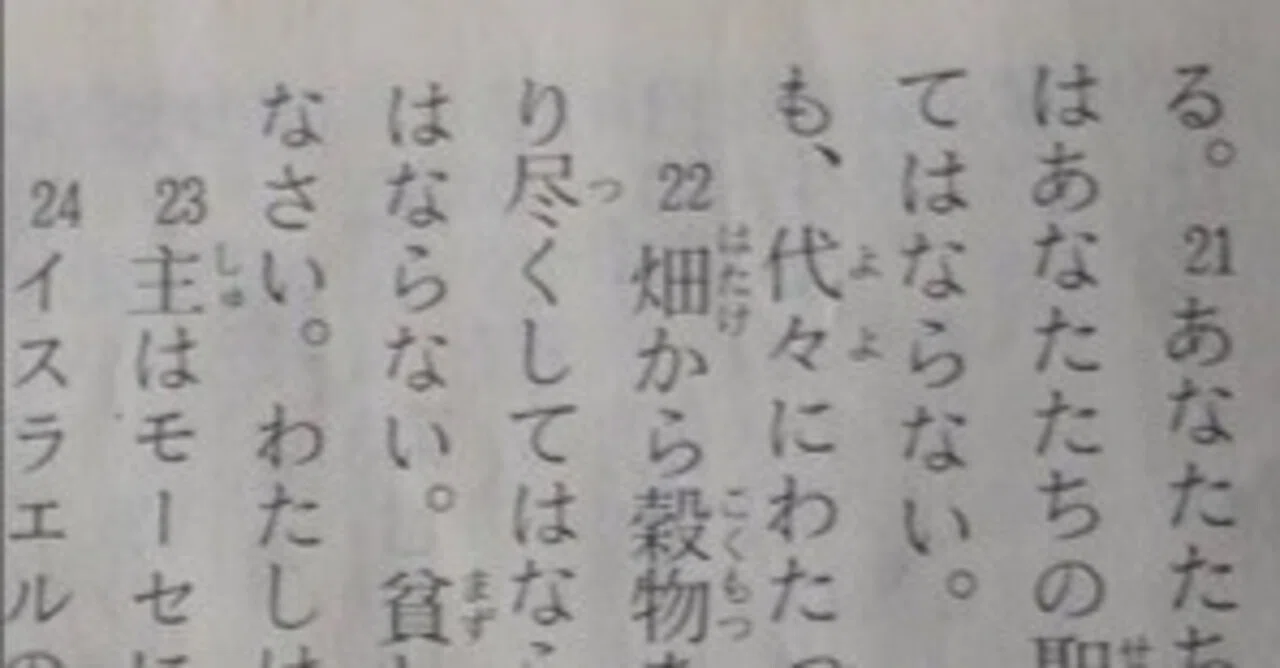 る。21あなたた
はあなたたちの
てはならない。
も、代々にわた
22畑から穀物
り尽くしてはな
はならない。貧
なさい。わたし
23主はモーセ
24イスラエル